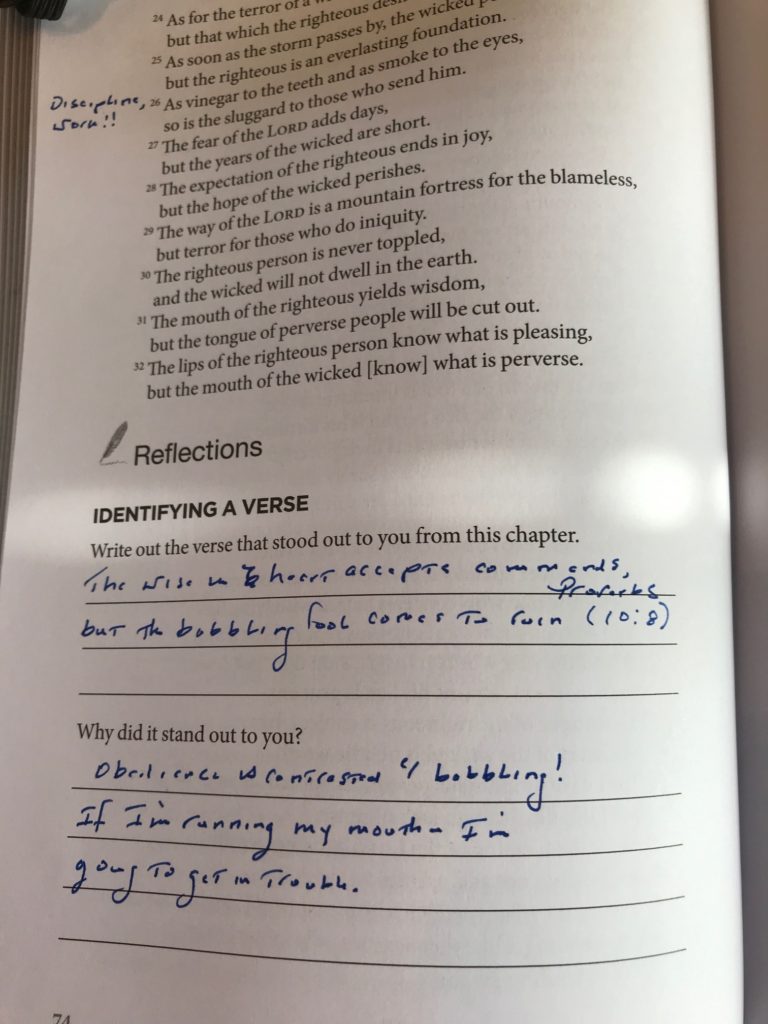 24 As for the terror of a
but that which the righteous
25 As soon as the storm passes by, the wicked
but the righteous is an everlasting foundation.
Discipline,
work!!
26 As vinegar to the teeth and as smoke to the eyes,
so is the sluggard to those who send him.
27 The fear of the LORD adds days,
but the years of the wicked are short.
28 The expectation of the righteous ends in joy,
but the hope of the wicked perishes.
29 The way of the LORD is a mountain fortress for the blameless,
but terror for those who do iniquity.
30 The righteous person is never toppled,
and the wicked will not dwell in the earth.
31 The mouth of the righteous yields wisdom,
but the tongue of perverse people will be cut out.
32 The lips of the righteous person know what is pleasing,
but the mouth of the wicked [know] what is perverse.
Reflections
IDENTIFYING A VERSE
Write out the verse that stood out to you from this chapter.
The wise in heart accepts commands,
Proverbs
but the babbling fool comes to ruin (10:8)
Why did it stand out to you?
Obedience is contrasted w/ babbling!
If I'm running my mouth - I'm
going to get in trouble.
74